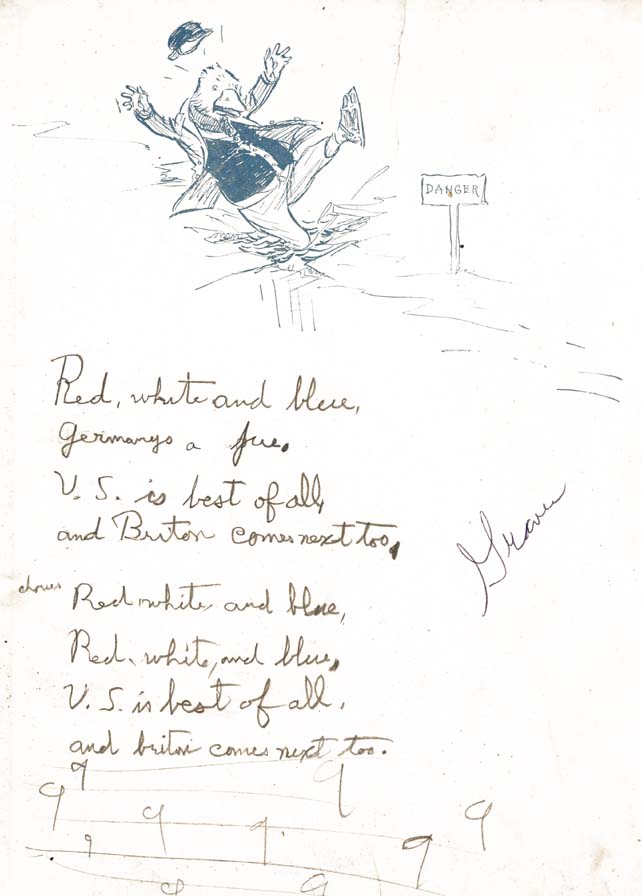 DANGER
Red, white and blue,
Germanys a fue.
U. S. is best of all,
and Briton comes next too,
Graves
chorus Red white and blue,
Red, white, and blue,
U. S. is best of all,
and briton comes next too.